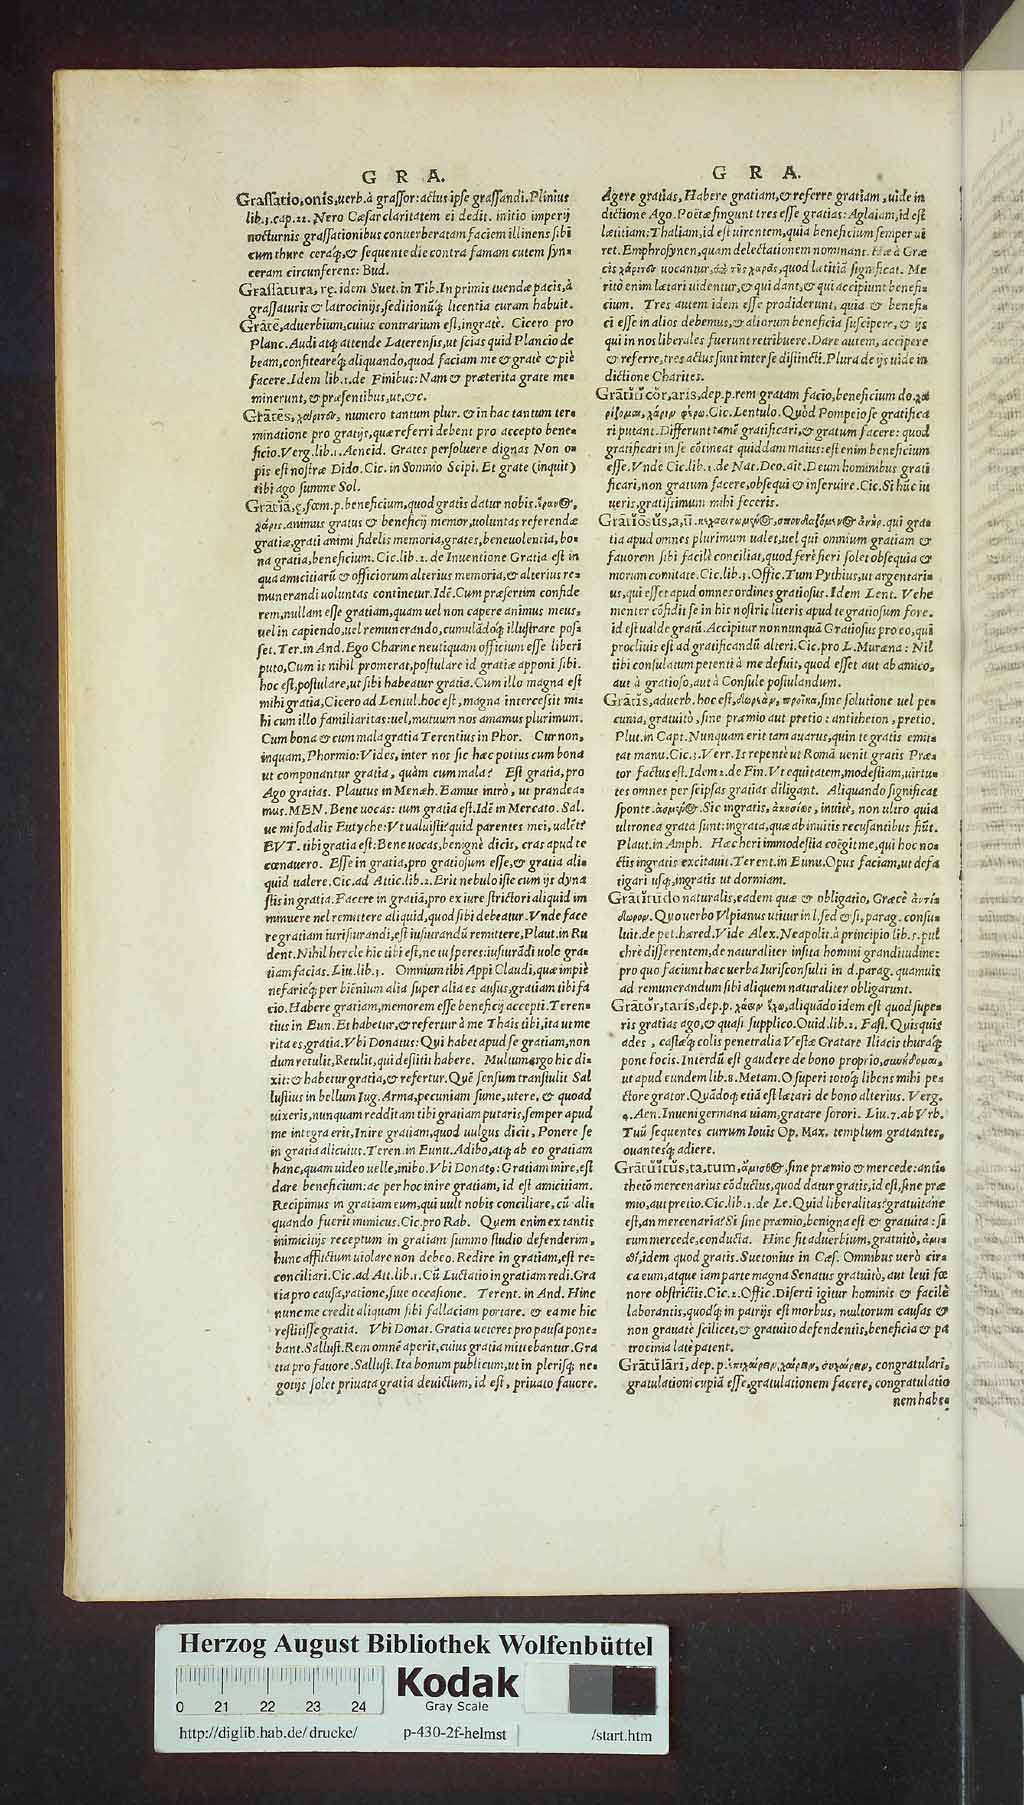 G R A.
Grassatio, onis, uerb. à grassor: actus ipse grassandi. Plinius
lib.3.cap.22. Nero Cæsar claritatem ei dedit. initio imperij
nocturnis grassationibus conuerberatam faciem illinens sibi
cum thure ceraq́;, & sequente die contra famam cutem syn=
ceram circunferens: Bud.
Grassatura, rę. idem Suet. in Tib. In primis tuendæ pacis, à
grassaturis & latrocinijs, seditionūq́; licentia curam habuit.
Grātē, aduerbium, cuius contrarium est, ingratè. Cicero pro
Planc. Audi atq; attende Laterensis, ut scias quid Plancio de
beam, confitearéq́; aliquando, quod faciam me & gratè & piè
facere. Idem lib.1. de Finibus: Nam & præterita grate me=
minerunt, & præsentibus, ut, &c.
Grātēs, χάριτες, numero tantum plur. & in hac tantum ter=
minatione pro gratijs, quæ referri debent pro accepto bene=
ficio. Verg. lib.1. Aeneid. Grates persoluere dignas Non o=
pis est nostræ Dido. Cic. in Somnio Scipi. Et grate (inquit)
tibi ago summe Sol.
Grātiă, ę, fœm. p. beneficium, quod gratis datur nobis.
χάρις. animus gratus & beneficij memor, uoluntas referendæ
gratiæ, grati animi fidelis memoria, grates, beneuolentia, bo=
na gratia, beneficium. Cic. lib.2. de Inuentione Gratia est in
qua amicitiarū & officiorum alterius memoria, & alterius re=
munerandi uoluntas continetur. Idē. Cum præsertim confide
rem, nullam esse gratiam, quam uel non capere animus meus,
uel in capiendo, uel remunerando, cumulādoq́; illustrare pos=
set. Ter. in And. Ego Charine neutiquam officium esse liberi
puto, Cum is nihil promerat, postulare id gratiæ apponi sibi.
hoc est, postulare, ut sibi habeatur gratia. Cum illo magna est
mihi gratia, Cicero ad Lentul. hoc est, magna intercessit mi=
hi cum illo familiaritas: uel, mutuum nos amamus plurimum.
Cum bona & cum mala gratia Terentius in Phor. Cur non,
inquam, Phormio: Vides, inter nos sic hæc potius cum bona
ut componantur gratia, quàm cum mala? Est gratia, pro
Ago gratias. Plautus in Menæh. Eamus intrò, ut prandea=
mus. MEN. Bene uocas: tum gratia est. Idē in Mercato. Sal.
ue mi sodalis Eutyche: Vt ualuisti? quid parentes mei, ualēt?
EVT. tibi gratia est: Bene uocas, benignè dicis, cras apud te
cœnauero. Esse in gratia, pro gratiosum esse, & gratia ali=
quid ualere. Cic. ad Attic. lib.2. Erit nebulo iste cum ijs dyna
stis in gratia. Facere in gratiā, pro ex iure strictori aliquid im
minuere uel remittere aliquid, quod sibi debeatur. Vnde face
re gratiam iurisiurandi, est iusiurandū remittere, Plaut. in Ru
dent. Nihil hercle hic tibi est, ne tu speres: iusiurādi uolo gra=
tiam facias. Liu. lib.3. Omnium tibi Appi Claudi, quæ impiè
nefarieq́; per biēnium alia super alia es ausus, gratiam tibi fa
cio. Habere gratiam, memorem esse beneficij accepti. Teren=
tius in Eun. Et habetur, & refertur à me Thais tibi, ita ut me
rita es, gratia. Vbi Donatus: Qui habet apud se gratiam, non
dum retulit, Retulit, qui desiitit habere. Multum ergo hic di=
xit: & habetur gratia, & refertur. Quē sensum transtulit Sal
lustius in bellum Iug. Arma, pecuniam sume, utere, & quoad
uixeris, nunquam redditam tibi gratiam putaris, semper apud
me integra erit, Inire gratiam, quod uulgus dicit, Ponere se
in gratia alicuius. Teren. in Eunu. Adibo, atq; ab eo gratiam
hanc, quam uideo uelle, inibo. Vbi Donat9: Gratiam inire, est
dare beneficium: ac per hoc inire gratiam, id est amicitiam.
Recipimus in gratiam eum, qui uult nobis conciliare, cū ali=
quando fuerit inimicus. Cic. pro Rab. Quem enim ex tantis
inimicitijs receptum in gratiam summo studio defenderim,
hunc afflictum uiolare non debeo. Redire in gratiam, est re=
conciliari. Cic. ad Att. lib.1. Cū Luctatio in gratiam redi. Gra
tia pro causa, ratione, siue occasione. Terent. in And. Hinc
nunc me credit aliquam sibi fallaciam portare. & ea me hic
restitisse gratia. Vbi Donat. Gratia ueteres pro pausa pone=
bant. Sallust. Rem omnē aperit, cuius gratia mittebantur. Gra
tia pro fauore. Sallust. Ita bonum publicum, ut in plerisq; ne=
gotijs solet priuata gratia deuictum, id est, priuato fauore.
G R A.
Agere gratias, Habere gratiam, & referre gratiam, uide in
dictione Ago. Poëtæ fingunt tres esse gratias: Aglaiam, id est
lætitiam: Thaliam, id est uirentem, quia beneficium semper ui
ret. Emphrosynen, quam delectationem nominant. Hæ à Græ
cis χάριτες uocantur, ἀπὸ τῆς χαρᾶς, quod lætitiā significat. Me
ritò enim lætari uidentur, & qui dant, & qui accipiunt benefi=
cium. Tres autem idem esse prodiderunt, quia & benefi=
ci esse in alios debemus, & aliorum beneficia suscipere, & ijs
qui in nos liberales fuerunt retribuere. Dare autem, accipere
& referre, tres actus sunt inter se distincti. Plura de ijs uide in
dictione Charites.
Grātĭfĭcŏr, aris, dep. p. rem gratam facio, beneficium do. χα
ρίζομαι, χάριν φέρω. Cic. Lentulo. Quòd Pompeio se gratifica
ri putant. Differunt tamē gratificari, & gratum facere: quod
gratificari in se cōtineat quiddam maius: est enim beneficium
esse. Vnde Cic. lib.1. de Nat. Deo. ait. Deum hominibus grati
ficari, non gratum facere, obsequi & inseruire. Cic. Si hūc iu
ueris, gratissimum mihi feceris.
Grātĭōsŭs, a, ū. qui gra=
tia apud omnes plurimum ualet, uel qui omnium gratiam &
fauorem sibi facilè conciliat, quod ferè fieri solet obsequia &
morum comitate. Cic. lib.3. Offic. Tum Pythius, ut argentari=
us, qui esset apud omnes ordines gratiosus. Idem Lent. Vehe
menter cōfidit se in his nostris literis apud te gratiosum fore.
id est ualde gratū. Accipitur nonnunquā Gratiosus pro eo, qui
procliuis est ad gratificandū alteri. Cic. pro L. Muræna: Nil
tibi consulatum petenti à me defuit, quod esset aut ab amico,
aut à gratioso, aut à Consule postulandum.
Grātis, aduerb. hoc est, δωρεὰν, προῖκα, sine solutione uel pe=
cunia, gratuitò, sine præmio aut pretio: antitheton, pretio.
Plut. in Capt. Nunquam erit tam auarus, quin te gratis emit=
tat manu. Cic.3. Verr. Is repentè ut Romā uenit gratis Præ=
tor factus est. Idem 2. de Fin. Vt equitatem, modestiam, uirtu=
tes omnes per seipsas gratis diligant. Aliquando significat
sponte. Sic ingratis, ἀκουσίως, inuitè, non ultro quia
ultronea grata sunt: ingrata, quæ ab inuitis recusantibus fiūt.
Plaut. in Amph. Hæc heri immodestia coëgit me, qui hoc no=
ctis ingratis excitauit. Terent. in Eunu. Opus faciam, ut defa
tigari usq;, ingratis ut dormiam.
Grātĭtūdo naturalis, eadem quæ & obligatio, Græcè ἀντί=
δωρον. Quo uerbo Vlpianus utitur in l. sed & si, parag. consu=
luit. de pet. hæred. Vide Alex. Neapolit. à principio lib.5. pul
chrè disserentem, de naturaliter insita homini granditudine:
pro quo faciunt hæc uerba Iurisconsulti in d. parag. quamuis
ad remunerandum sibi aliquem naturaliter obligarunt.
Grātŏr, taris, dep. p. χάριν ἔχω, aliquādo idem est quod supe=
ris gratias ago, & quasi supplico. Ouid. lib.2. Fast. Quisquis
ades, castæq́; colis penetralia Vestæ Gratare Iliacis thuraq́;
pone focis. Interdū est gaudere de bono proprio, συνήδομαι,
ut apud eundem lib.8. Metam. O superi totoq́; libens mihi pe=
ctore grator. Quādoq; etiā est lætari de bono alterius. Verg.
4. Aen. Inueni germana uiam, gratare sorori. Liu.7. ab Vrb.
Tuū sequentes currum Iouis Op. Max. templum gratantes,
ouantesq; adiere.
Grātŭĭtŭs, ta, tum, ἄμισθος, sine præmio & mercede: anti=
thetō mercenarius cōductus, quod datur gratis, id est, sine præ
mio, aut pretio. Cic. lib.1. de Le. Quid liberalitas? gratuitáne
est, an mercenaria? Si sine præmio, benigna est & gratuita: si
cum mercede, conducta. Hinc fit aduerbium, gratuitò, ἀμισ=
θί, idem quod gratis. Suetonius in Cæs. Omnibus uerò cir=
ca eum, atque iam parte magna Senatus gratuitò, aut leui fœ
nore obstrictis. Cic.2. Offic. Diserti igitur hominis & facilè
laborantis, quodq́; in patrijs est morbus, multorum causas &
non grauatè scilicet, & gratuito defendentis, beneficia & pa
trocinia latè patent.
Grātŭlāri, dep. p. ἐπιχαίρειν, χαίρειν, συγχαίρειν, congratulari,
gratulationi cupiā esse, gratulationem facere, congratulatio
nem habe=
Herzog August Bibliothek Wolfenbüttel
0 21 22 23 24
Kodak
Gray Scale
http://diglib.hab.de/drucke/ p-430-2f-helmst /start.htm